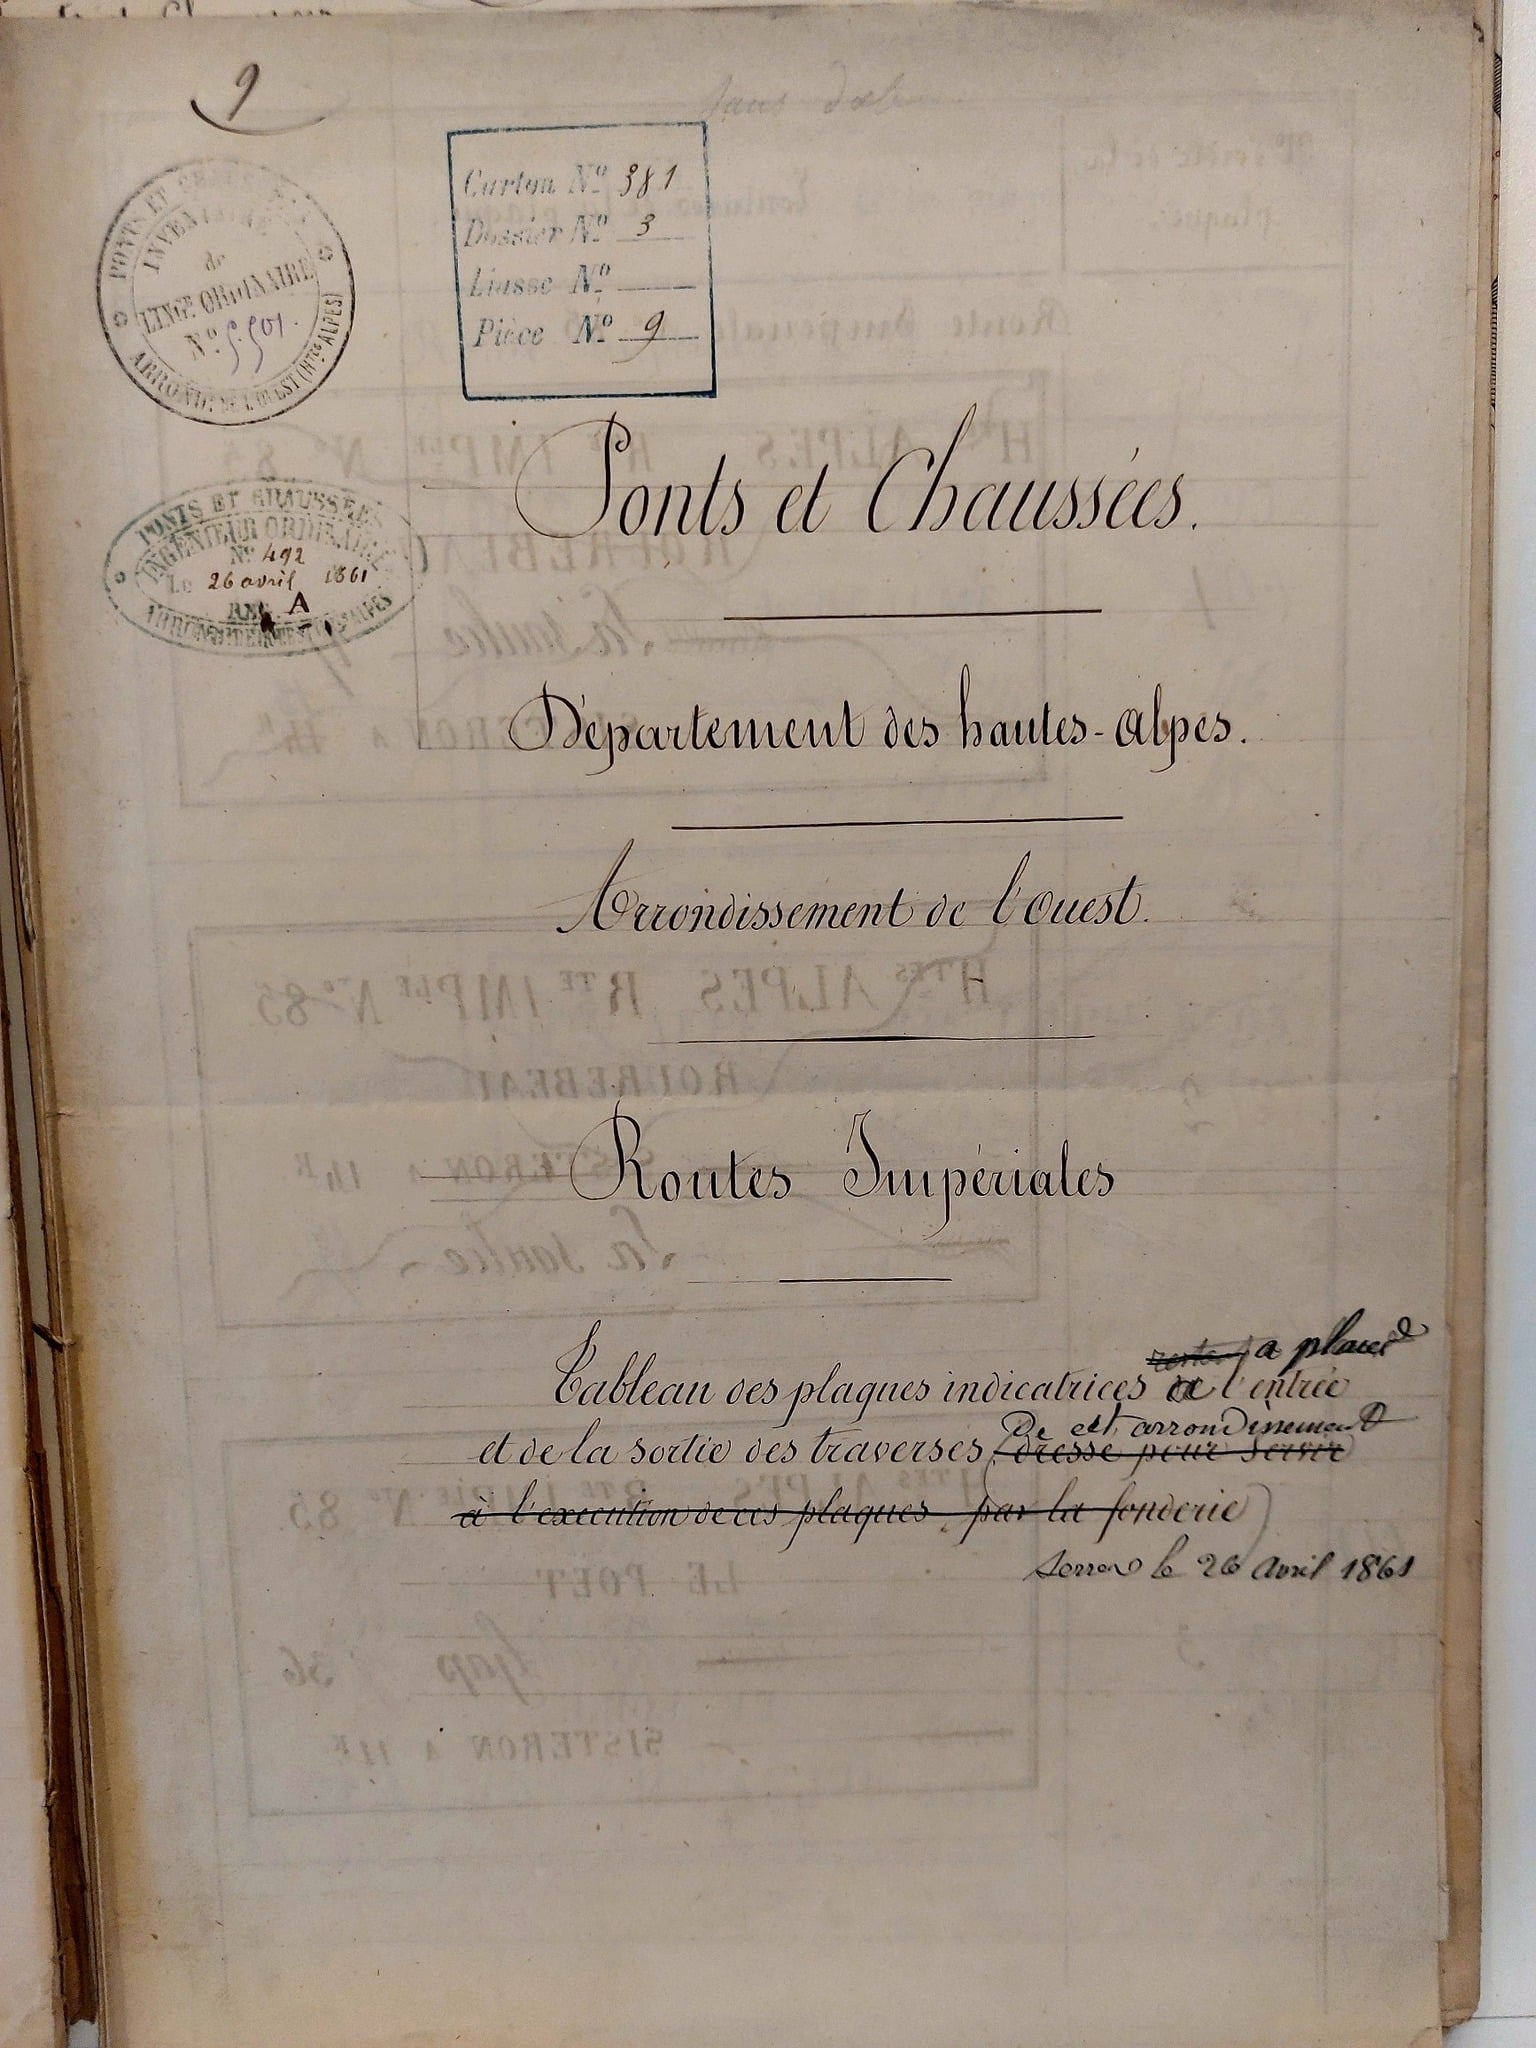 9
sans date
PONTS ET CHAUSSÉES
INVENTAIRE
de
L'INGR ORDINAIRE
No 5.501.
ARRONDt DE L'OUEST (HTES ALPES)
Carton No 381
Dossier No 3
Liasse No
Pièce No 9
Ponts et Chaussées.
PONTS ET CHAUSSÉES
INGÉNIEUR ORDINAIRE
No 492
Le 26 avril 1861
REG. A
Département des hautes-Alpes.
Arrondissement de l'Ouest.
Routes Impériales
a placer
Tableau des plaques indicatrices de l'entrée
De cet arrondissement
et de la sortie des traverses, dressé pour servir
à l'exécution de ces plaques, par la fonderie
Serres le 26 avril 1861